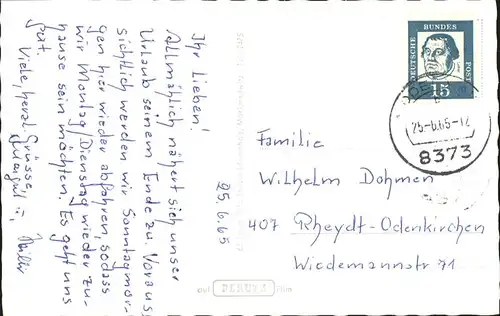 Ihr Lieben!
Allmählich nähert sich unser
Urlaub seinem Ende zu. Voraus-
sichtlich werden wir Sonntagmor-
gen hier wieder abfahren, sodass
wir Montag/Dienstag wieder zu-
hause sein möchten. Es geht uns
gut.
Viele, herzl. Grüsse,
25.6.65
DEUTSCHE
BUNDES
POST
15
25.-6.65-12
8373
Familie
Wilhelm Dohmen
407 Rheydt-Odenkirchen
Wiedemannstr 71
auf PERUTZ Film